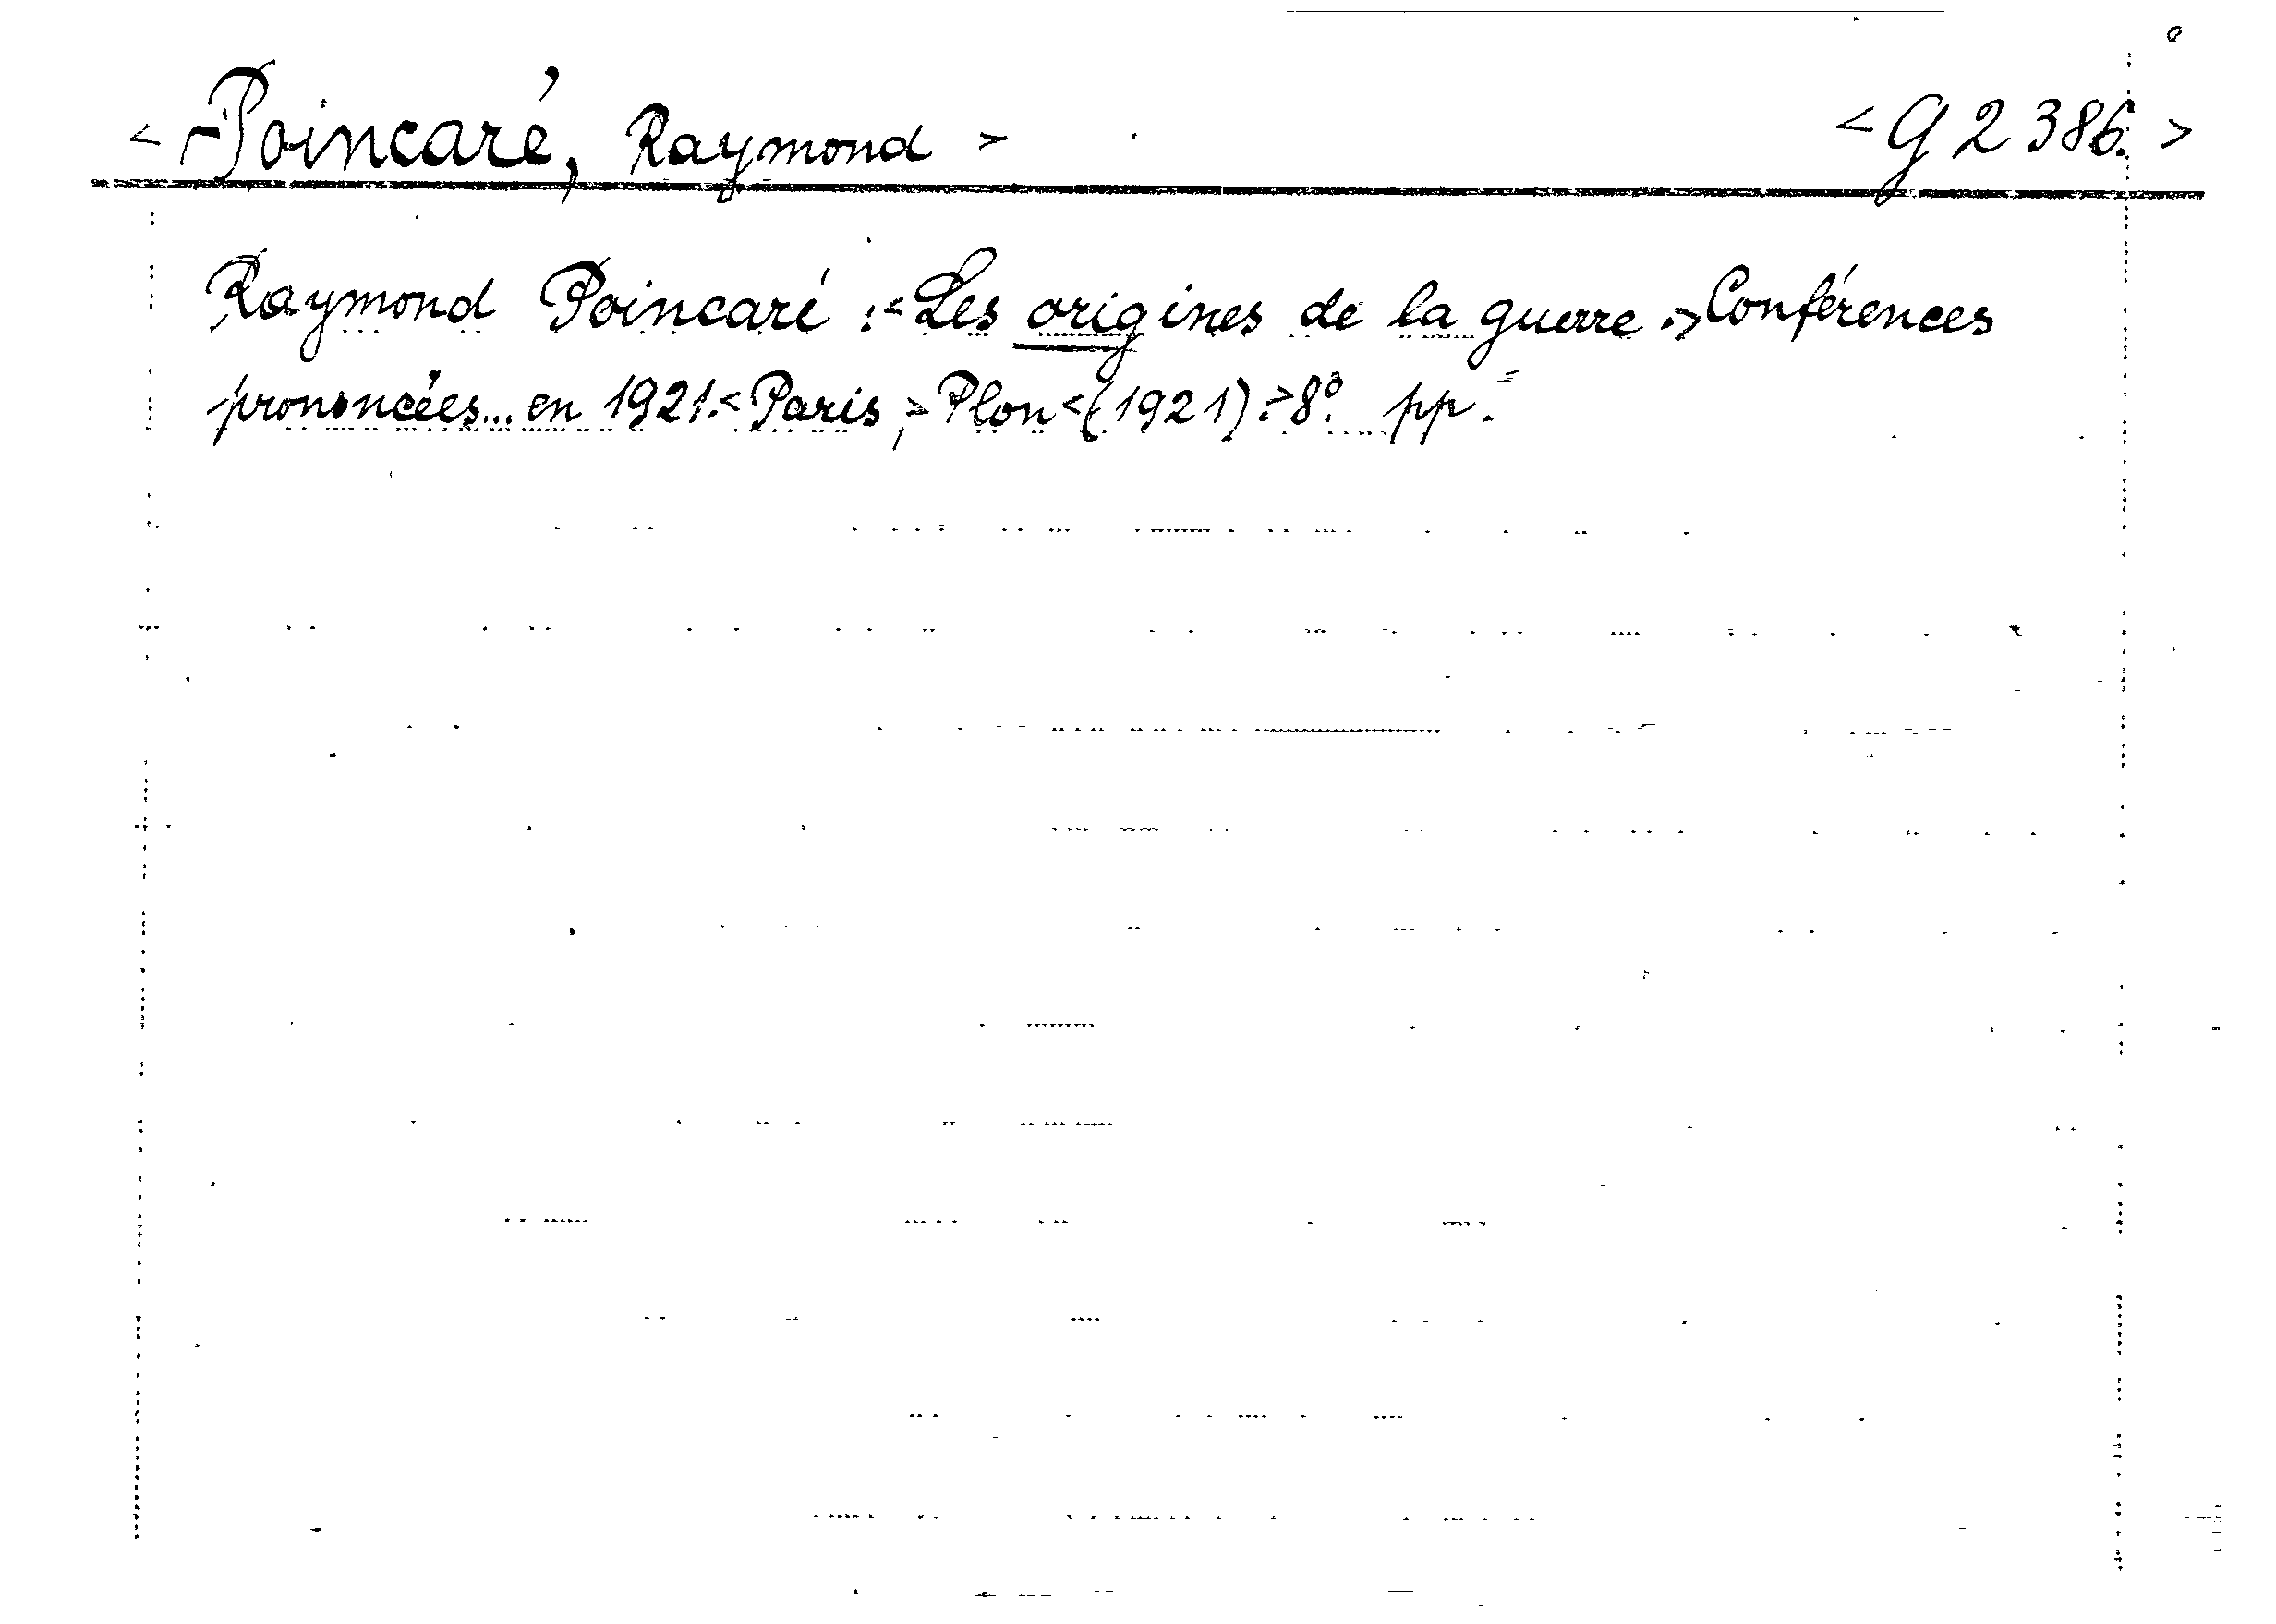 < Poincaré, Raymond > < G 2 386. >
Raymond Poincaré : < Les origines de la guerre. > Conférences
prononcées... en 1921. < Paris, > Plon < (1921). > 8° pp.